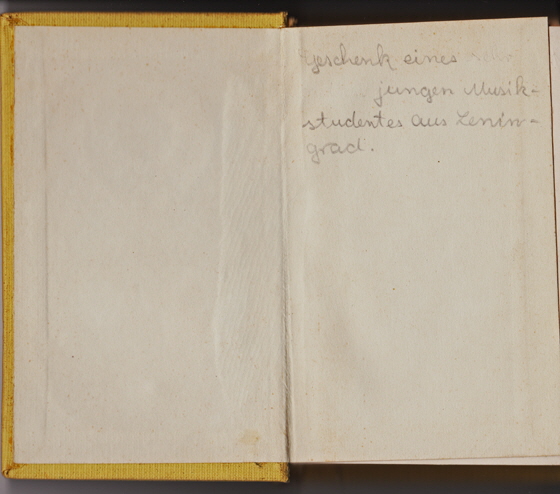 Geschenk eines
jungen Musik-
studentes aus Lenin-
grad.